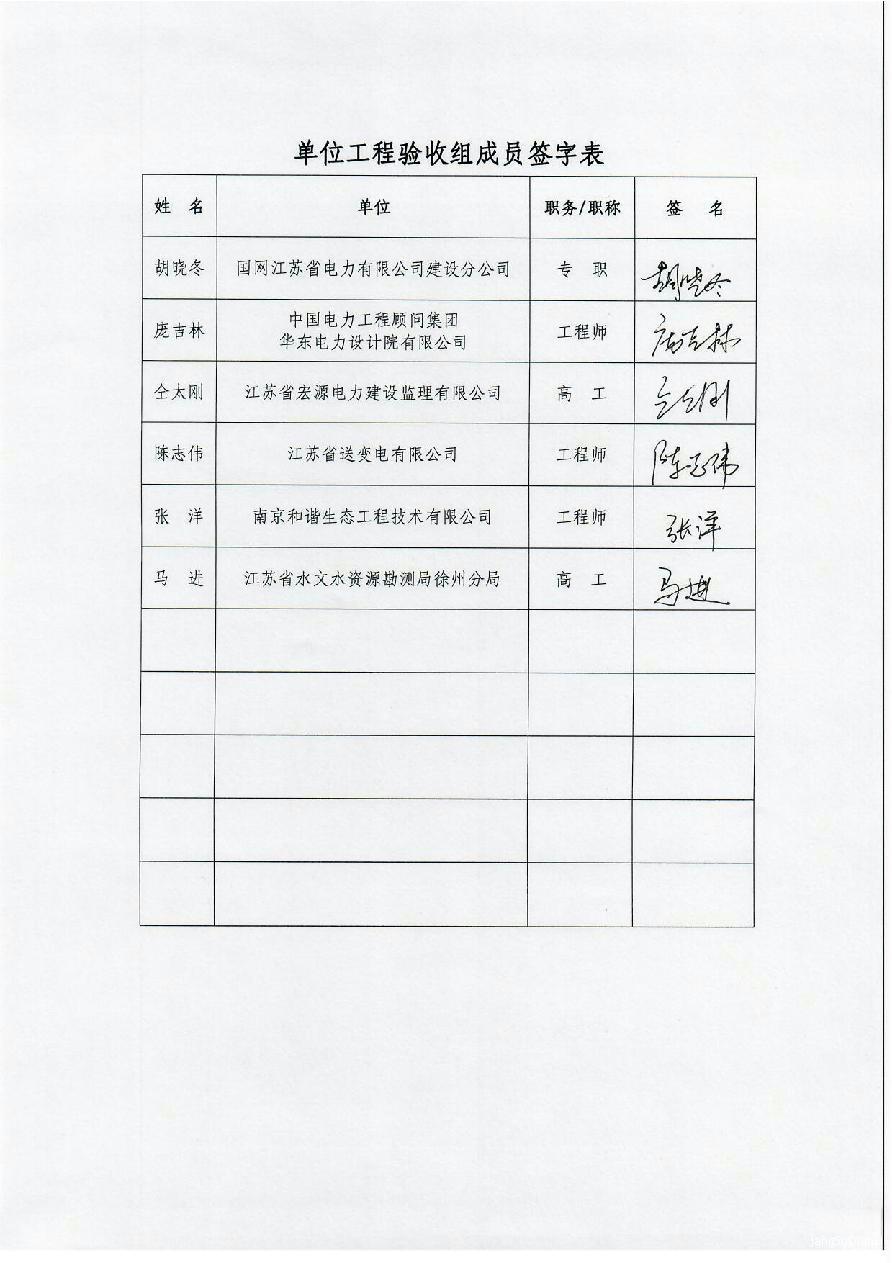 单位工程验收组成员签字表
姓 名 单位 职务/职称 签 名
胡晓冬 国网江苏省电力有限公司建设分公司 专 职 胡晓冬
中国电力工程顾问集团
庞吉林 华东电力设计院有限公司 工程师 庞吉林
仝太刚 江苏省宏源电力建设监理有限公司 高 工 仝太刚
陈志伟 江苏省送变电有限公司 工程师 陈志伟
张 洋 南京和谐生态工程技术有限公司 工程师 张洋
马 进 江苏省水文水资源勘测局徐州分局 高 工 马进